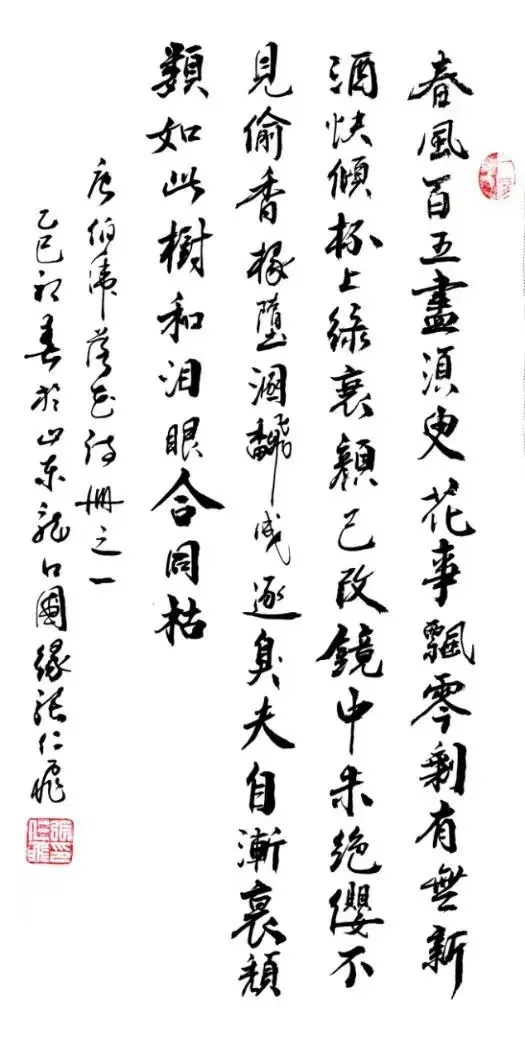 春風百五盡須臾花事飄零剩有無新
酒快傾杯上綠衰顏已改鏡中朱絕纓不
見偷香椽墮溷飜成逐臭夫自漸衰頹
類如此樹和泪眼合同枯
唐伯虎落花詩冊之一
乙巳初春於山東龍口圃緣張仁飛